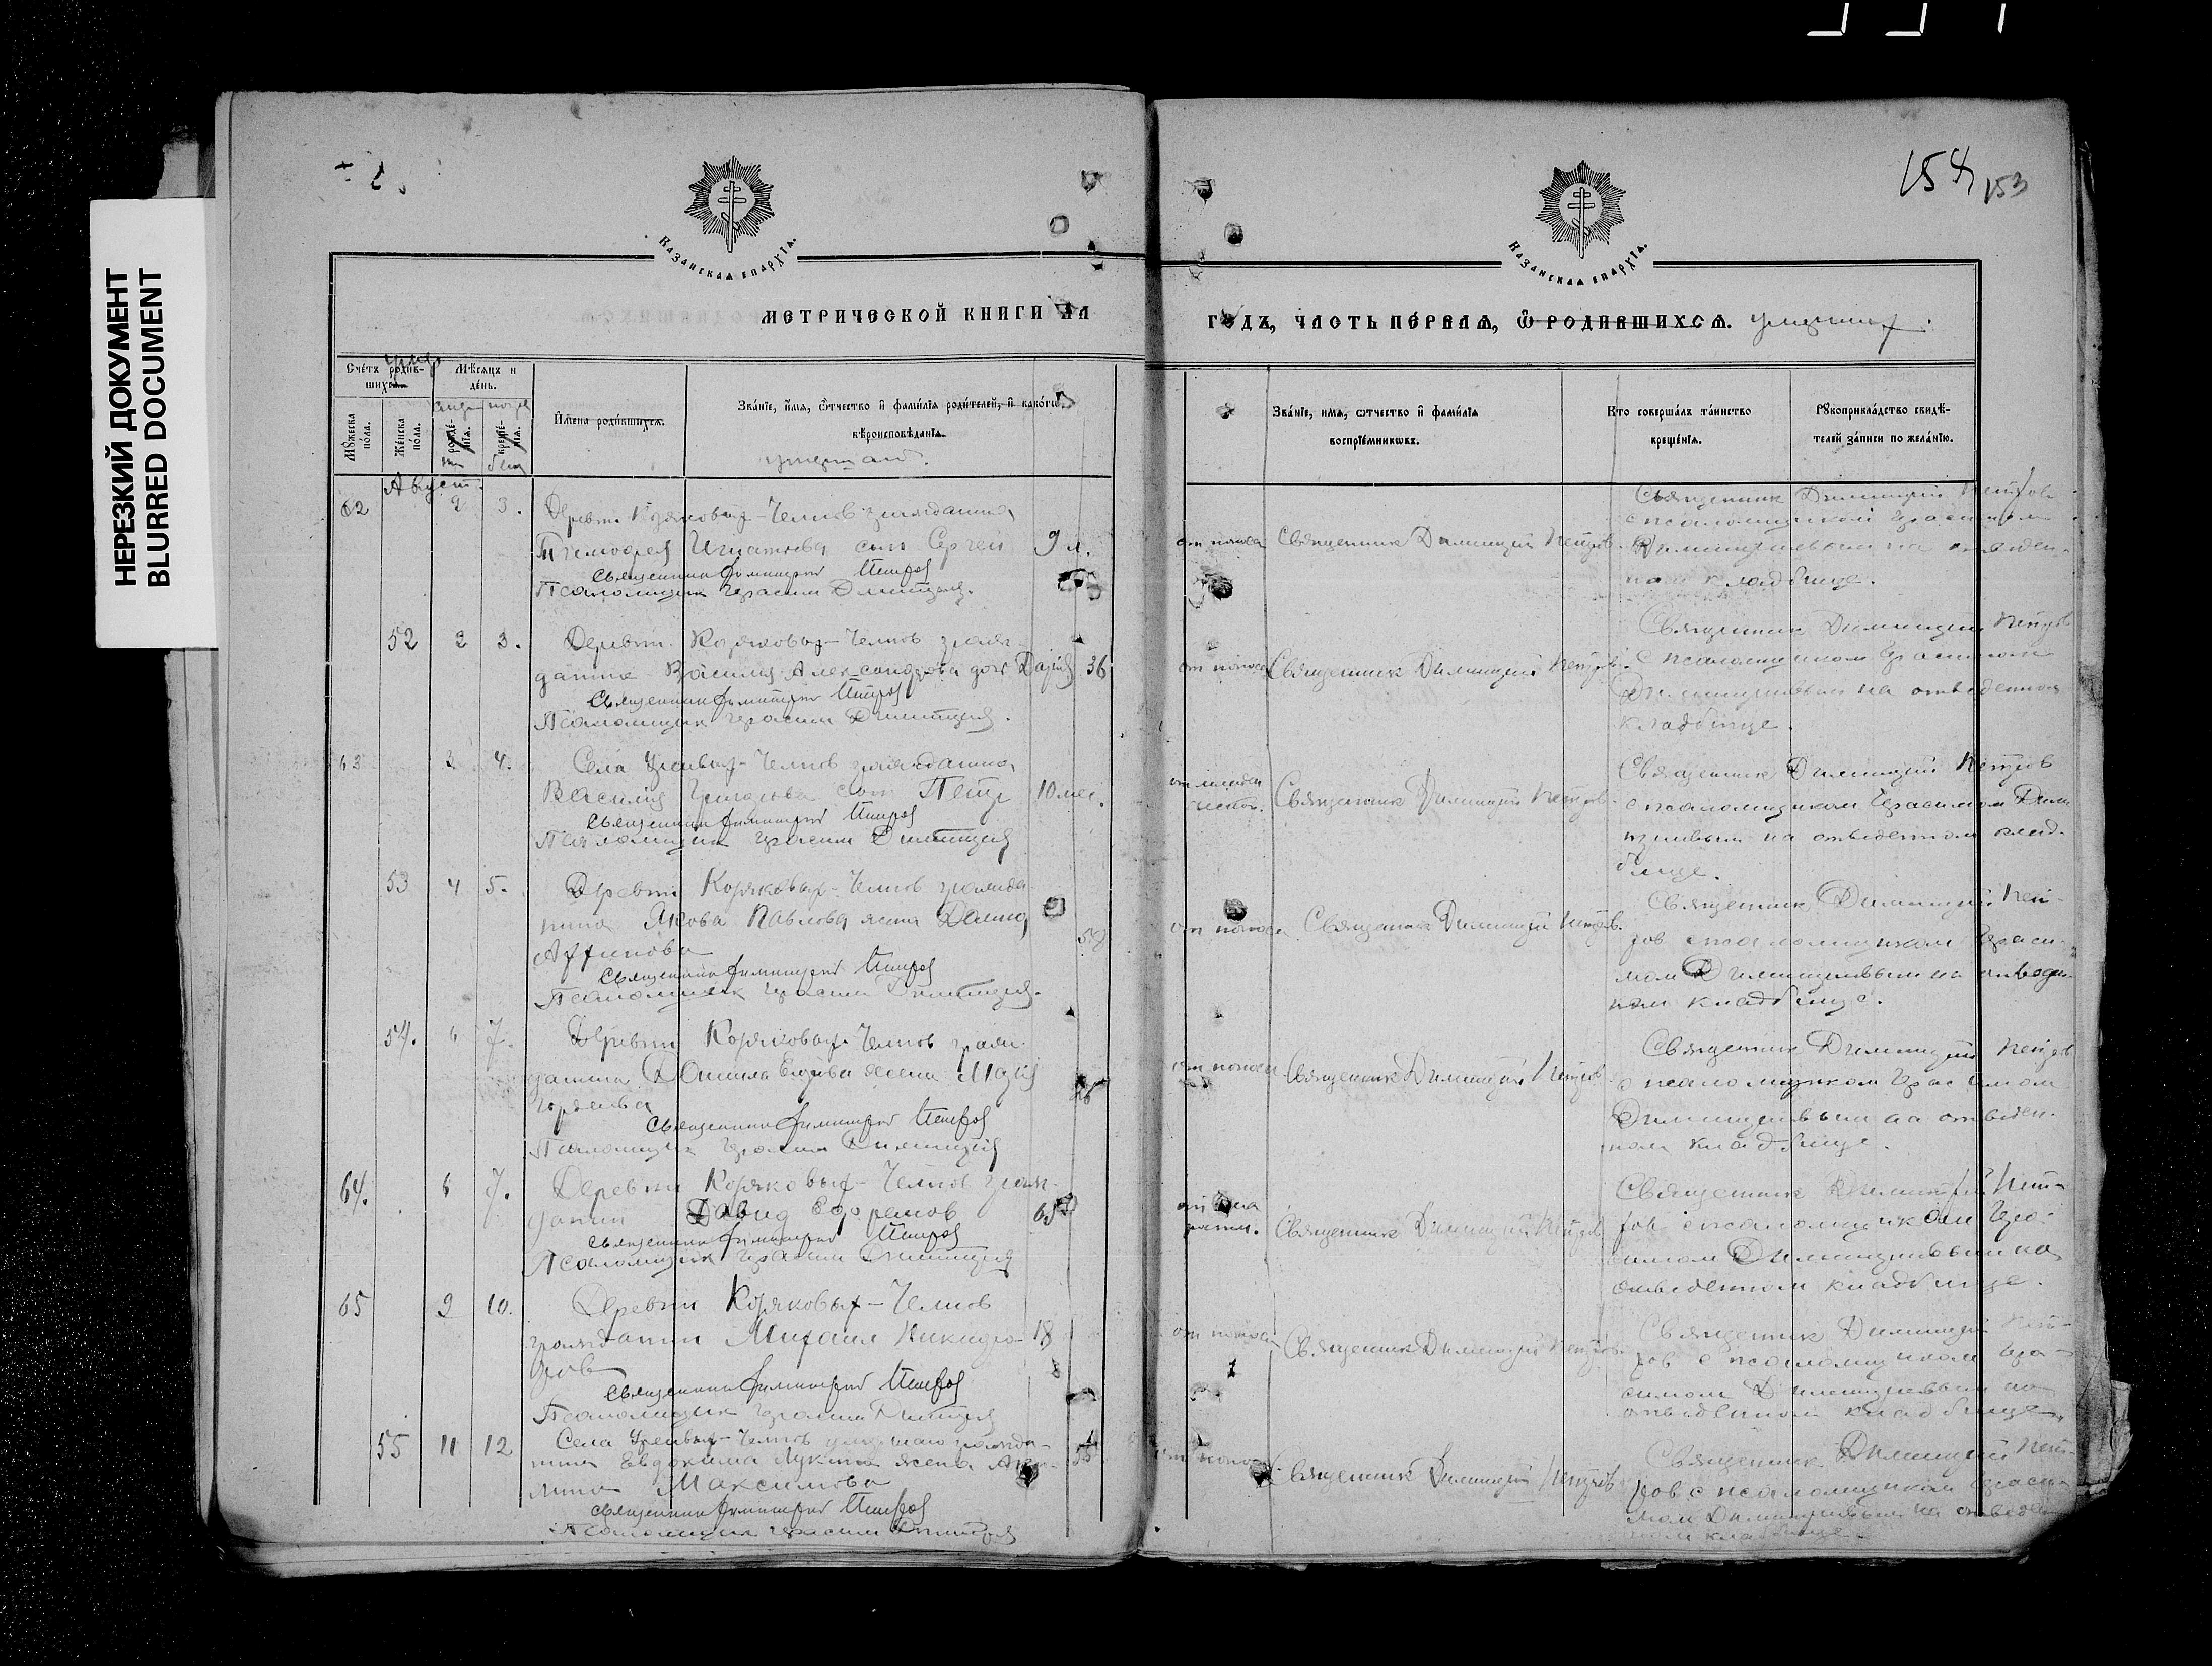 НЕРЕЗКИЙ ДОКУМЕНТ
BLURRED DOCUMENT
154 153
Казанская епархія.
Казанская епархія.
МЕТРИЧЕСКОЙ КНИГИ НА
ГОДЪ, ЧАСТЬ ПЕРВАЯ, Ѡ РОДИВШИХСЯ. умерших
Счетъ родив-
шихся
Мѣсяцъ и
день.
Мужеска
пола.
Женска
пола.
рожде-
нія.
креще-
нія.
Имена родившихся.
Званіе, имя, ѿчество и фамилія родителей, и какогѡ
вѣроисповѣданія.
умершаго.
Званіе, имя, ѿчество и фамилія
воспріемникѡвъ.
Кто совершалъ таинство
крещенія.
Рукоприкладство свидѣ-
телей записи по желанію.
Август.
62 2 3. Деревни Коряковых-Челнов гражданина
Тимофея Игнатьева сын Сергей 9 л.
Священник Димитрий Петров
Псаломщик Герасим Димитриев.
от поноса Священник Димитрий Петров.
Священник Димитрий Петров
с псаломщиком Герасимом
Димитриевым на отведен-
ном кладбище.
52 2 3. Деревни Коряковых-Челнов граж-
данина Василия Александрова дочь Дария 36
Священник Димитрий Петров
Псаломщик Герасим Димитриев.
от поноса Священник Димитрий Петров.
Священник Димитрий Петров
с псаломщиком Герасимом
Димитриевым на отведенном
кладбище.
63 3 4. Села Челнов гражданина
Василия Григорьева сын Петр 10 мес.
Священник Димитрий Петров
Псаломщик Герасим Димитриев
Священник Димитрий Петров.
Священник Димитрий Петров
с псаломщиком Герасимом Дими-
триевым на отведенном клад-
бище.
53 4 5. Деревни Коряковых-Челнов гражда-
нина Якова Павлова жена Домна
Священник Димитрий Петров
Псаломщик Герасим Димитриев.
от поноса Священник Димитрий Петров.
Священник Димитрий Пет-
ров с псаломщиком Гераси-
мом Димитриевым на отведен-
ном кладбище.
54. 6 7. Деревни Коряковых-Челнов граж-
данина Данила Егорова жена
Гордеева
Священник Димитрий Петров
Псаломщик Герасим Димитриев
от поноса Священник Димитрий Петров
Священник Димитрий Петров
с псаломщиком Герасимом
Димитриевым на отведен-
ном кладбище.
64. 6 7. Деревни Коряковых-Челнов граж-
данин Давид Ефремов 65
Священник Димитрий Петров
Псаломщик Герасим Димитриев
Священник Димитрий Петров
Священник Димитрий Пет-
ров с псаломщиком Гера-
симом Димитриевым на
отведенном кладбище.
65 9 10. Деревни Коряковых-Челнов
гражданин Михаил Никифо- 18
ров
Священник Димитрий Петров
Псаломщик Герасим Димитриев
от поноса Священник Димитрий Петров.
Священник Димитрий Пет-
ров с псаломщиком Гера-
симом Димитриевым на
отведенном кладбище.
55 11 12 Села Челнов умершаго гражда-
нина Евдокима Лукина жена
Максимова
Священник Димитрий Петров
Псаломщик Герасим Димитриев
Священник Димитрий Петров
Священник Димитрий Пет-
ров с псаломщиком Гераси-
мом Димитриевым на отведен-
ном кладбище.